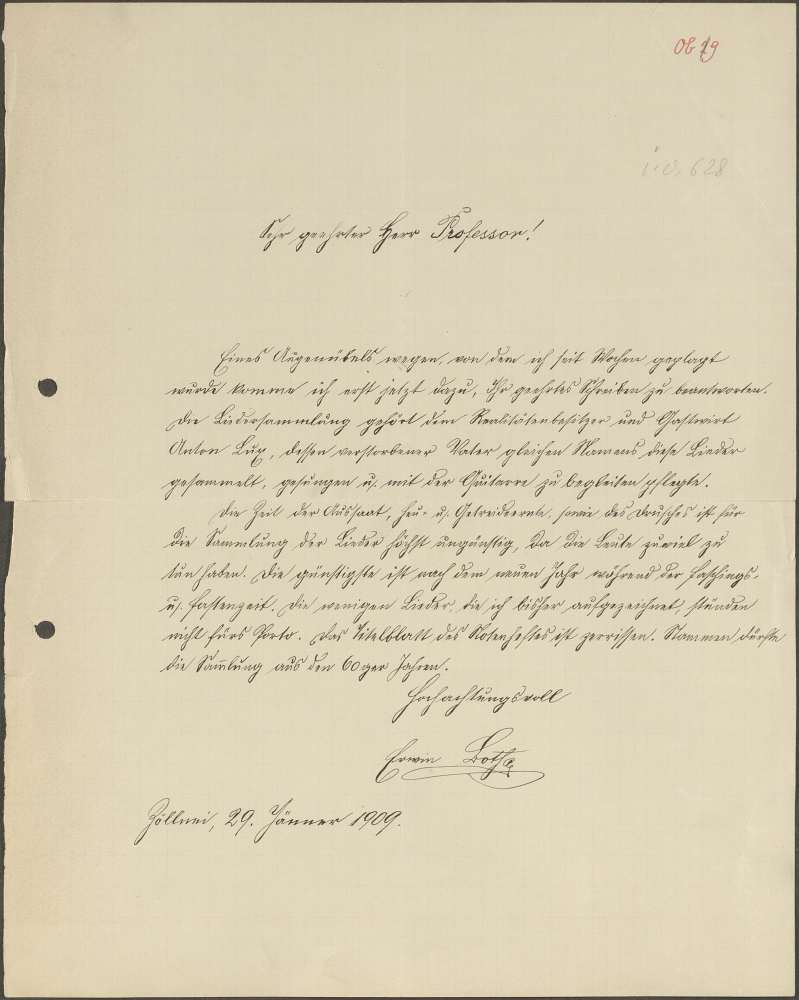 Ob 19
i. v. 628
Sehr geehrter Herr Professor!
Eines Augenübels wegen, von dem ich seit Wochen geplagt
wurde komme ich erst jetzt dazu, Ihr geehrtes Schreiben zu beantworten.
Die Liedersammlung gehört dem Realitätenbesitzer und Gastwirt
Anton Lux, dessen verstorbener Vater gleichen Namens diese Lieder
gesammelt, gesungen u. mit der Guitarre zu begleiten pflegte.
Die Zeit der Aussaat, Heu- u. Getreideernte, sowie des Drusches ist für
die Sammlung der Lieder höchst ungünstig, da die Leute zuviel zu
tun haben. Die günstigste ist nach dem neuen Jahr während der Faschings-
u. Fastenzeit. Die wenigen Lieder, die ich bisher aufgezeichnet, stünden
nicht fürs Porto. Das Titelblatt des Notenheftes ist zerrissen. Stammen dürfte
die Sam̅lung aus den 60ger Jahren.
Hochachtungsvoll
Erwin
Zöllnei, 29. Jänner 1909.